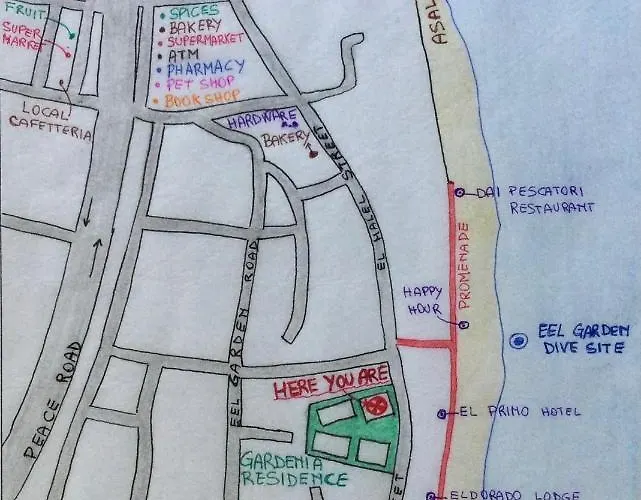 FRUIT
SUPER
MARKE
LOCAL
CAFETTERIA
SPICES
BAKERY
SUPERMARKET
ATM
PHARMACY
PET SHOP
BOOKSHOP
HARDWARE
BAKERY
EL HALEL STREET
ASAL
DAI PESCATORI
RESTAURANT
PROMENADE
HAPPY
HOUR
EEL GARDEN
DIVE SITE
EEL GARDEN ROAD
PEACE ROAD
HERE YOU ARE
EL PRIMO HOTEL
GARDENIA
RESIDENCE
ET
ELDORADO LODGE